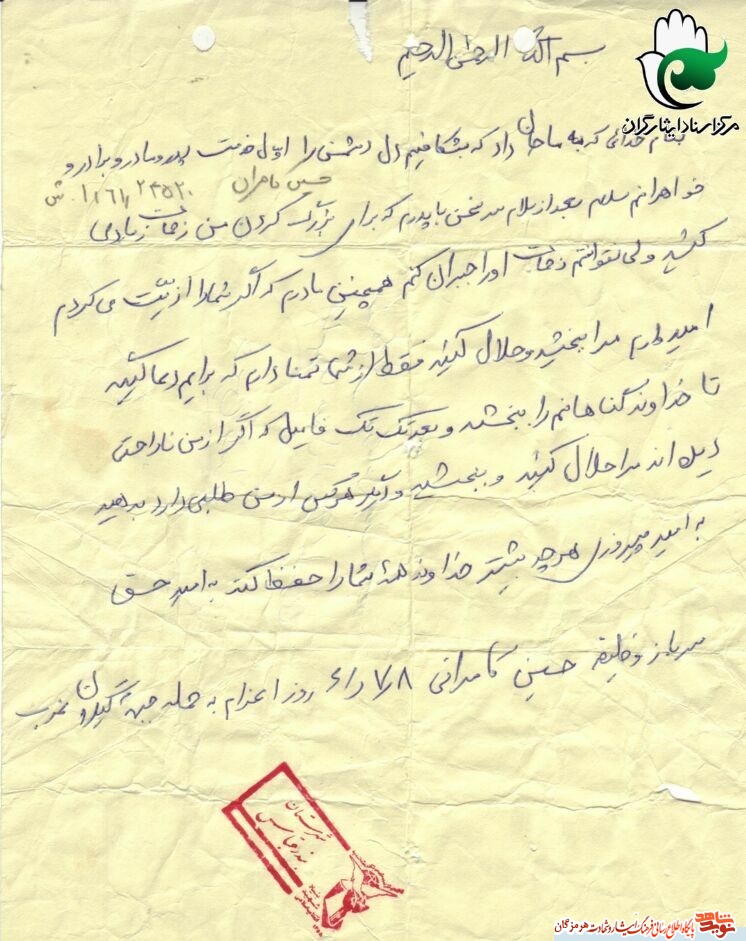 بسم الله الرحمن الرحیم
مرکز اسناد ایثارگران
بنام خدائی که به ما جان داد که بشکافیم دل دشمن را اول خدمت پدر و مادر و برادر و
حسین کامران
خواهرانم سلام بعد از سلام سخن با پدرم که برای بزرگ کردن من زحمات زیادی
کشید ولی نتوانستم زحمات او را جبران کنم همچنین مادرم که اگر شما را ازیّت می کردم
امیدوارم مرا ببخشید و حلال کنید فقط از شما تمنا دارم که برایم دعا کنید
تا خداوند گناهانم را ببخشد و بعد تک تک فامیل که اگر از من ناراحتی
دیده اند مرا حلال کنید و ببخشید و اگر هرکس از من طلبی دارد بدهید
به امید پیروزی هر چه بیشتر خداوند همۀ شما را حفظ کند به امید حق
سرباز وظیفه حسین کامرانی روز اعزام به حمله جبهه گیلان غرب
شهرستان
بندرعباس
نوید شاهد
پایگاه اطلاع رسانی فرهنگ ایثار و شهادت هرمزگان